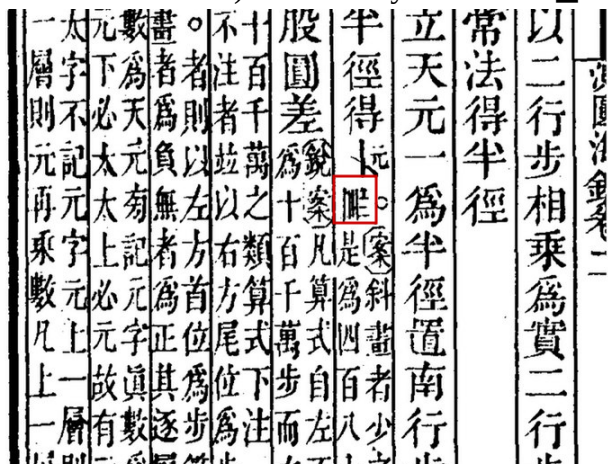 測圓海鏡卷二
以二行步相乘爲實二行步
常法得半徑
立天元一爲半徑置南行步
半徑得
元。案斜畫者少
是爲四百八十
股圓差
銳案凡算式自左
爲十百千萬步而
十百千萬之類算式下注
不注者並以右方尾位爲步
。者則以左方首位爲步
畫者爲負無者爲正其逐
數爲天元旁記元字眞數
元下必太太上必元故有
太字不記元字元上一層則
一層則元再乘數凡上一